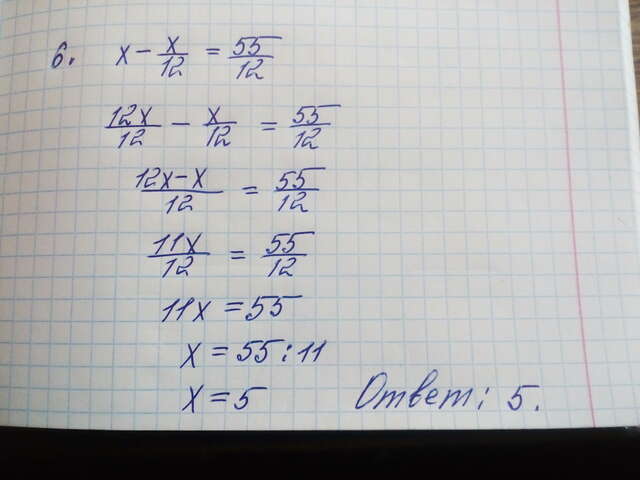 6. x - x/12 = 55/12
12x/12 - x/12 = 55/12
12x-x/12 = 55/12
11x/12 = 55/12
11x = 55
x = 55:11
x = 5 Ответ: 5.